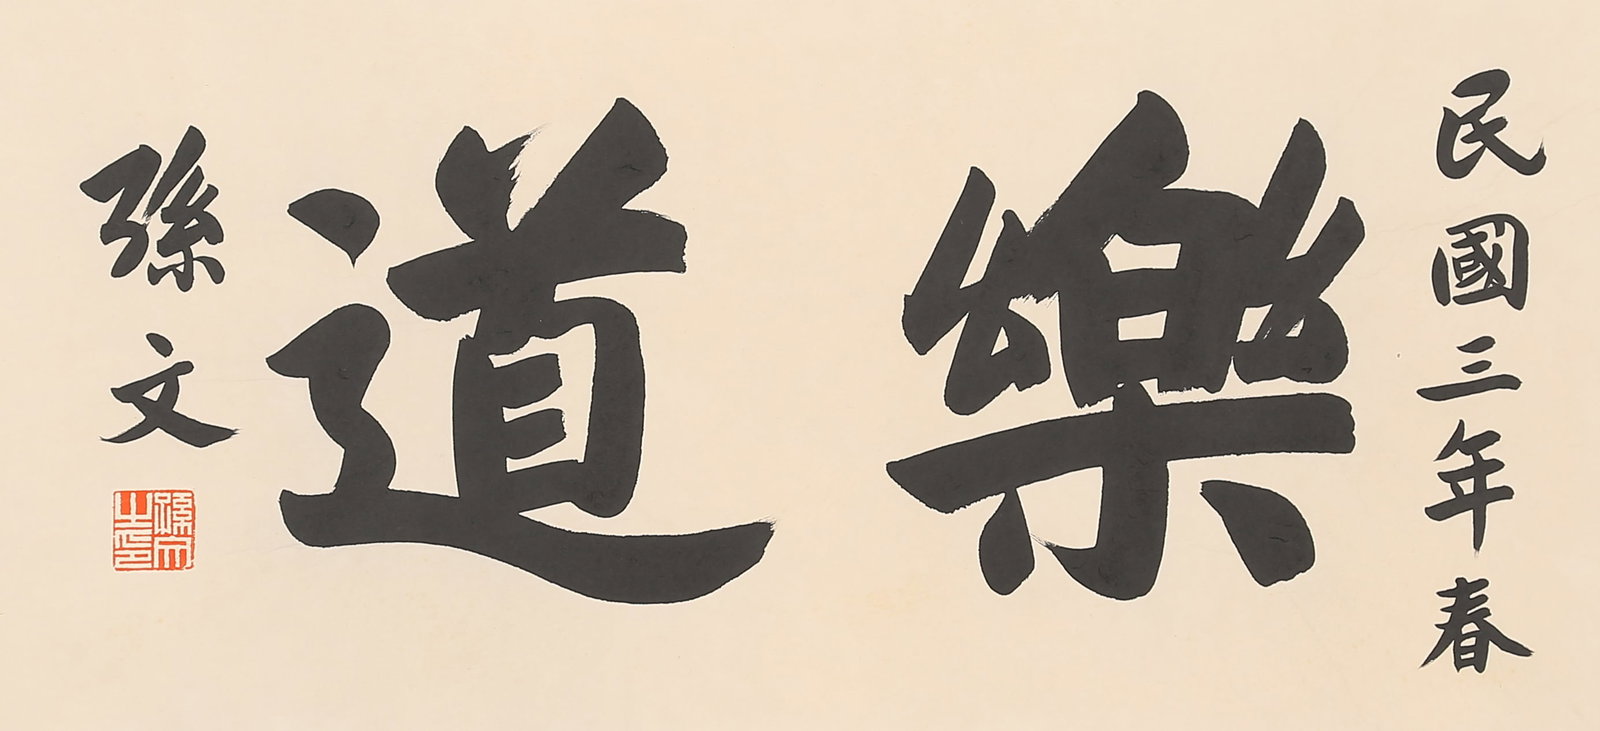 民國三年春
樂道
孫文
孫文之印